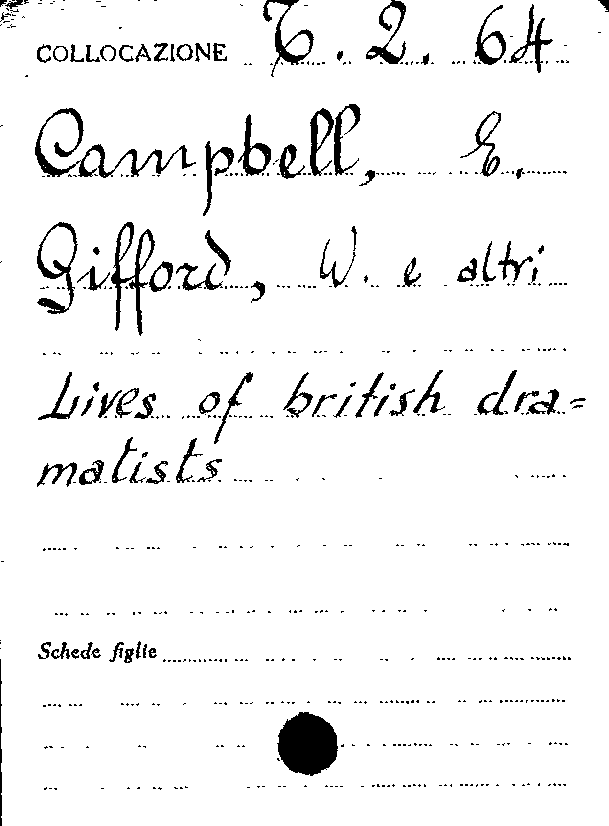 COLLOCAZIONE T. 2. 64
Campbell, E.
Gifford, W. e altri
Lives of british dra=
matists
Schede figlie